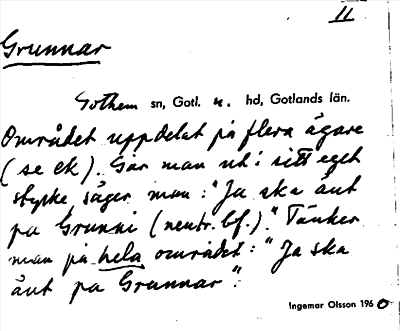 11
Grunnar
Gothem sn, Gotl. n. hd, Gotlands län.
Området uppdelat på flera ägare
(se ek). Går man ut i sitt eget
stycke, säger man: "Ja ska äut
pa Grunni (neutr. bf.)." Tänker
man på hela området: "Ja ska
äut pa Grunnar".
Ingemar Olsson 1960